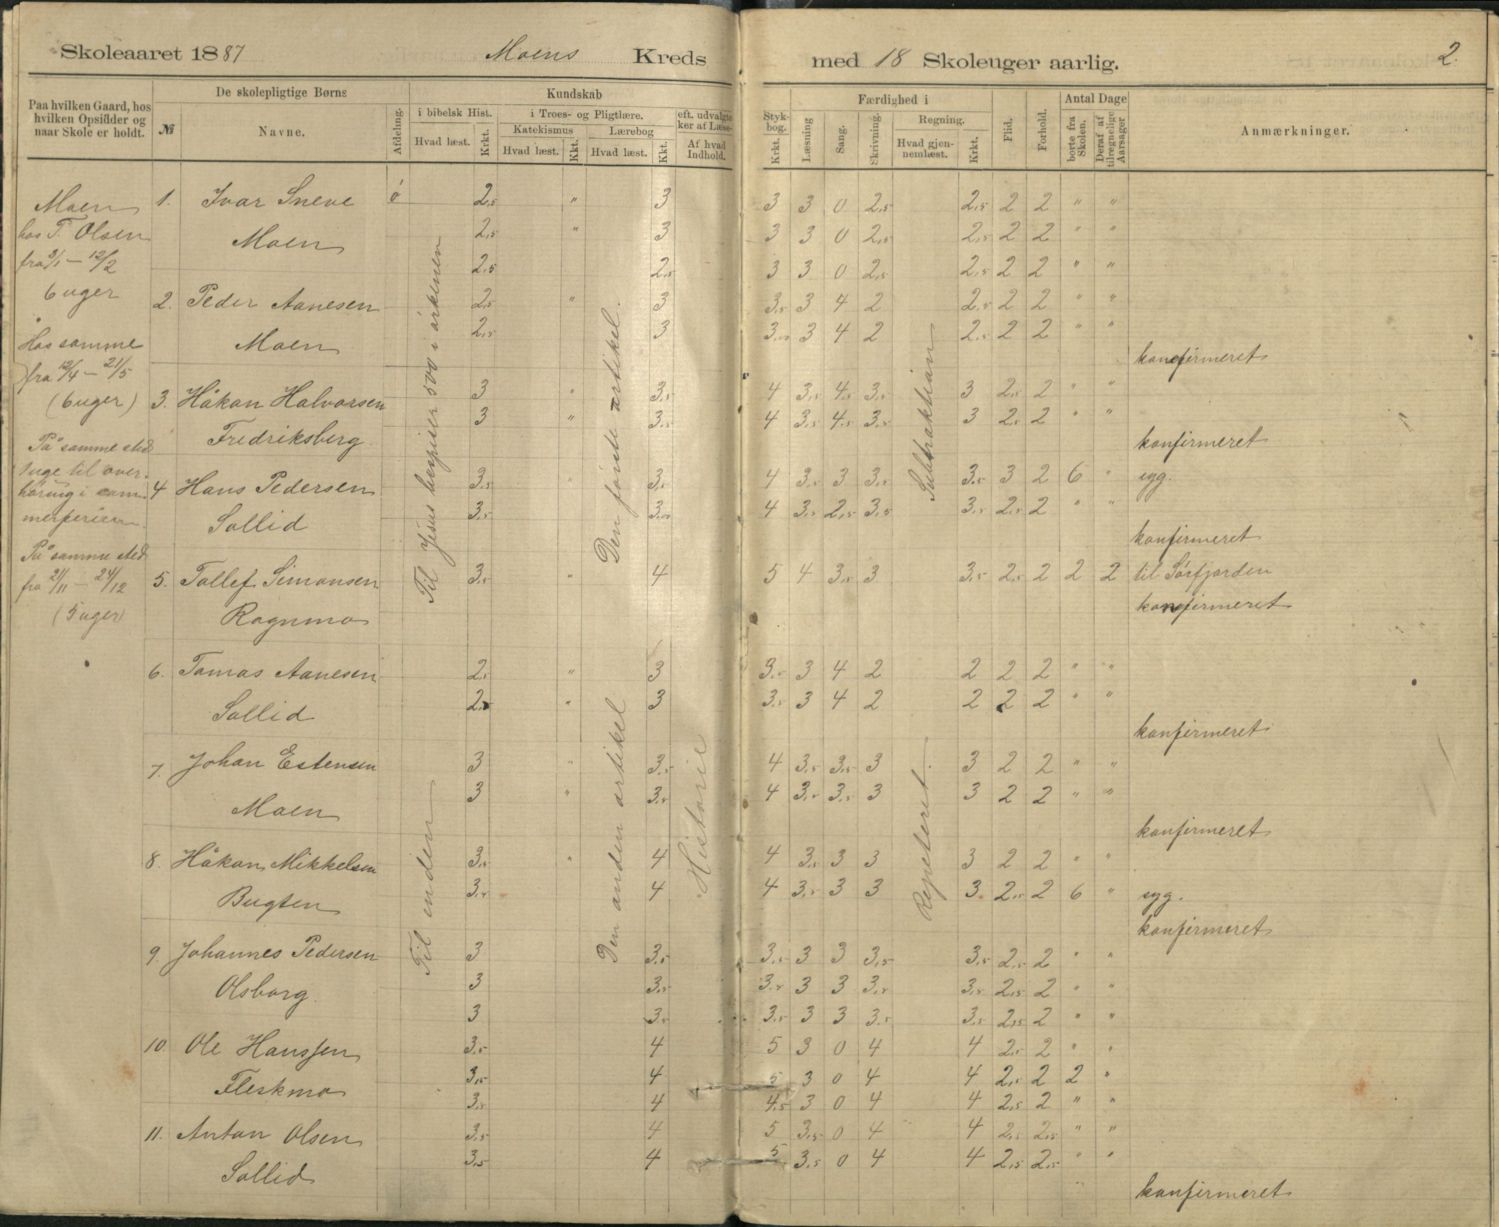 Skoleaaret 1887 Moens Kreds med 18 Skoleuger aarlig. 2.
Paa hvilken Gaard, hos hvilken Opsidder og naar Skole er holdt.
De skolepligtige Børns
№ Navne.
Afdeling.
Kundskab
i bibelsk Hist.
Hvad læst. Krkt.
i Troes- og Pligtlære.
Katekismus
Hvad læst. Kkt.
Lærebog
Hvad læst. Kkt.
eft. udvalgte
ker af Læse-
Af hvad
Indhold.
Styk-
bog.
Krkt.
Færdighed i
Læsning
Sang.
Skrivning.
Regning.
Hvad gjen-
nemlæst.
Krkt.
Flid.
Forhold.
Antal Dage
borte fra
Skolen.
Deraf af
tilregnelige
Aarsager
Anmærkninger.
Moen
hos T. Olsen
fra 3/1 — 12/2
6 uger
Hos samme
fra 12/4 — 21/5
(6 uger)
På samme sted
1 uge til over-
høring i som-
merferien.
På samme sted
fra 21/11 — 24/12
(5 uger)
Til Jesus bespiser 500 i ørkenen
Til enden
Den første artikel.
Den anden artikel
Historie
Subtraktion
Repeteret.
1. Ivar Sneve ø 2,5 " 3 3 3 0 2,5 2,5 2 2 " "
Moen 2,5 " 3 3 3 0 2,5 2,5 2 2 " "
2,5 2,5 3 3 0 2,5 2,5 2 2 " "
2. Peder Aanesen 2,5 " 3 3,5 3 4 2 2,5 2 2 " "
Moen 2,5 3 3,5 3 4 2 2,5 2 2 " "
konfirmeret
3. Håkan Halvorsen 3 " 3,5 4 3,5 4,5 3,5 3 2,5 2 " "
Fredriksberg 3 " 3,5 4 3,5 4,5 3,5 3 2,5 2 " "
konfirmeret
4 Hans Pedersen 3,5 " 3,5 4 3,5 3 3,5 3,5 3 2 6 " syg.
Sollid 3,5 3,5 4 3,5 2,5 3,5 3,5 2,5 2 " "
konfirmeret
5. Tollef Simonsen 3,5 " 4 5 4 3,5 3 3,5 2,5 2 2 2 til Sørfjorden
Rognmo konfirmeret
6. Tomas Aanesen 2,5 " 3 3,5 3 4 2 2 2 2 " "
Sollid 2,5 " 3 3,5 3 4 2 2 2 2 " "
konfirmeret
7. Johan Estensen 3 " 3,5 4 3,5 3,5 3 3 2 2 " "
Moen 3 " 3,5 4 3,5 3,5 3 3 2 2 " "
konfirmeret
8. Håkon Mikkelsen 3,5 " 4 4 3,5 3 3 3 2 2 " "
Bugten 3,5 4 4 3,5 3 3 3 2,5 2 6 " syg.
konfirmeret
9. Johannes Pedersen 3 3,5 3,5 3 3 3,5 3,5 2,5 2 " "
Olsborg 3 3,5 3,5 3 3 3,5 3,5 2,5 2 " "
3 3,5 3,5 3 3 3,5 3,5 2,5 2 " "
10. Ole Hanssen 3,5 4 5 3 0 4 4 2,5 2 " "
Fleskmo 3,5 4 5 3 0 4 4 2,5 2 2 "
3,5 4 4,5 3 0 4 4 2,5 2 " "
11. Anton Olsen 3,5 4 5 3,5 0 4 4 2,5 2,5 " "
Sollid 3,5 4 5 3,5 0 4 4 2,5 2,5 " "
konfirmeret